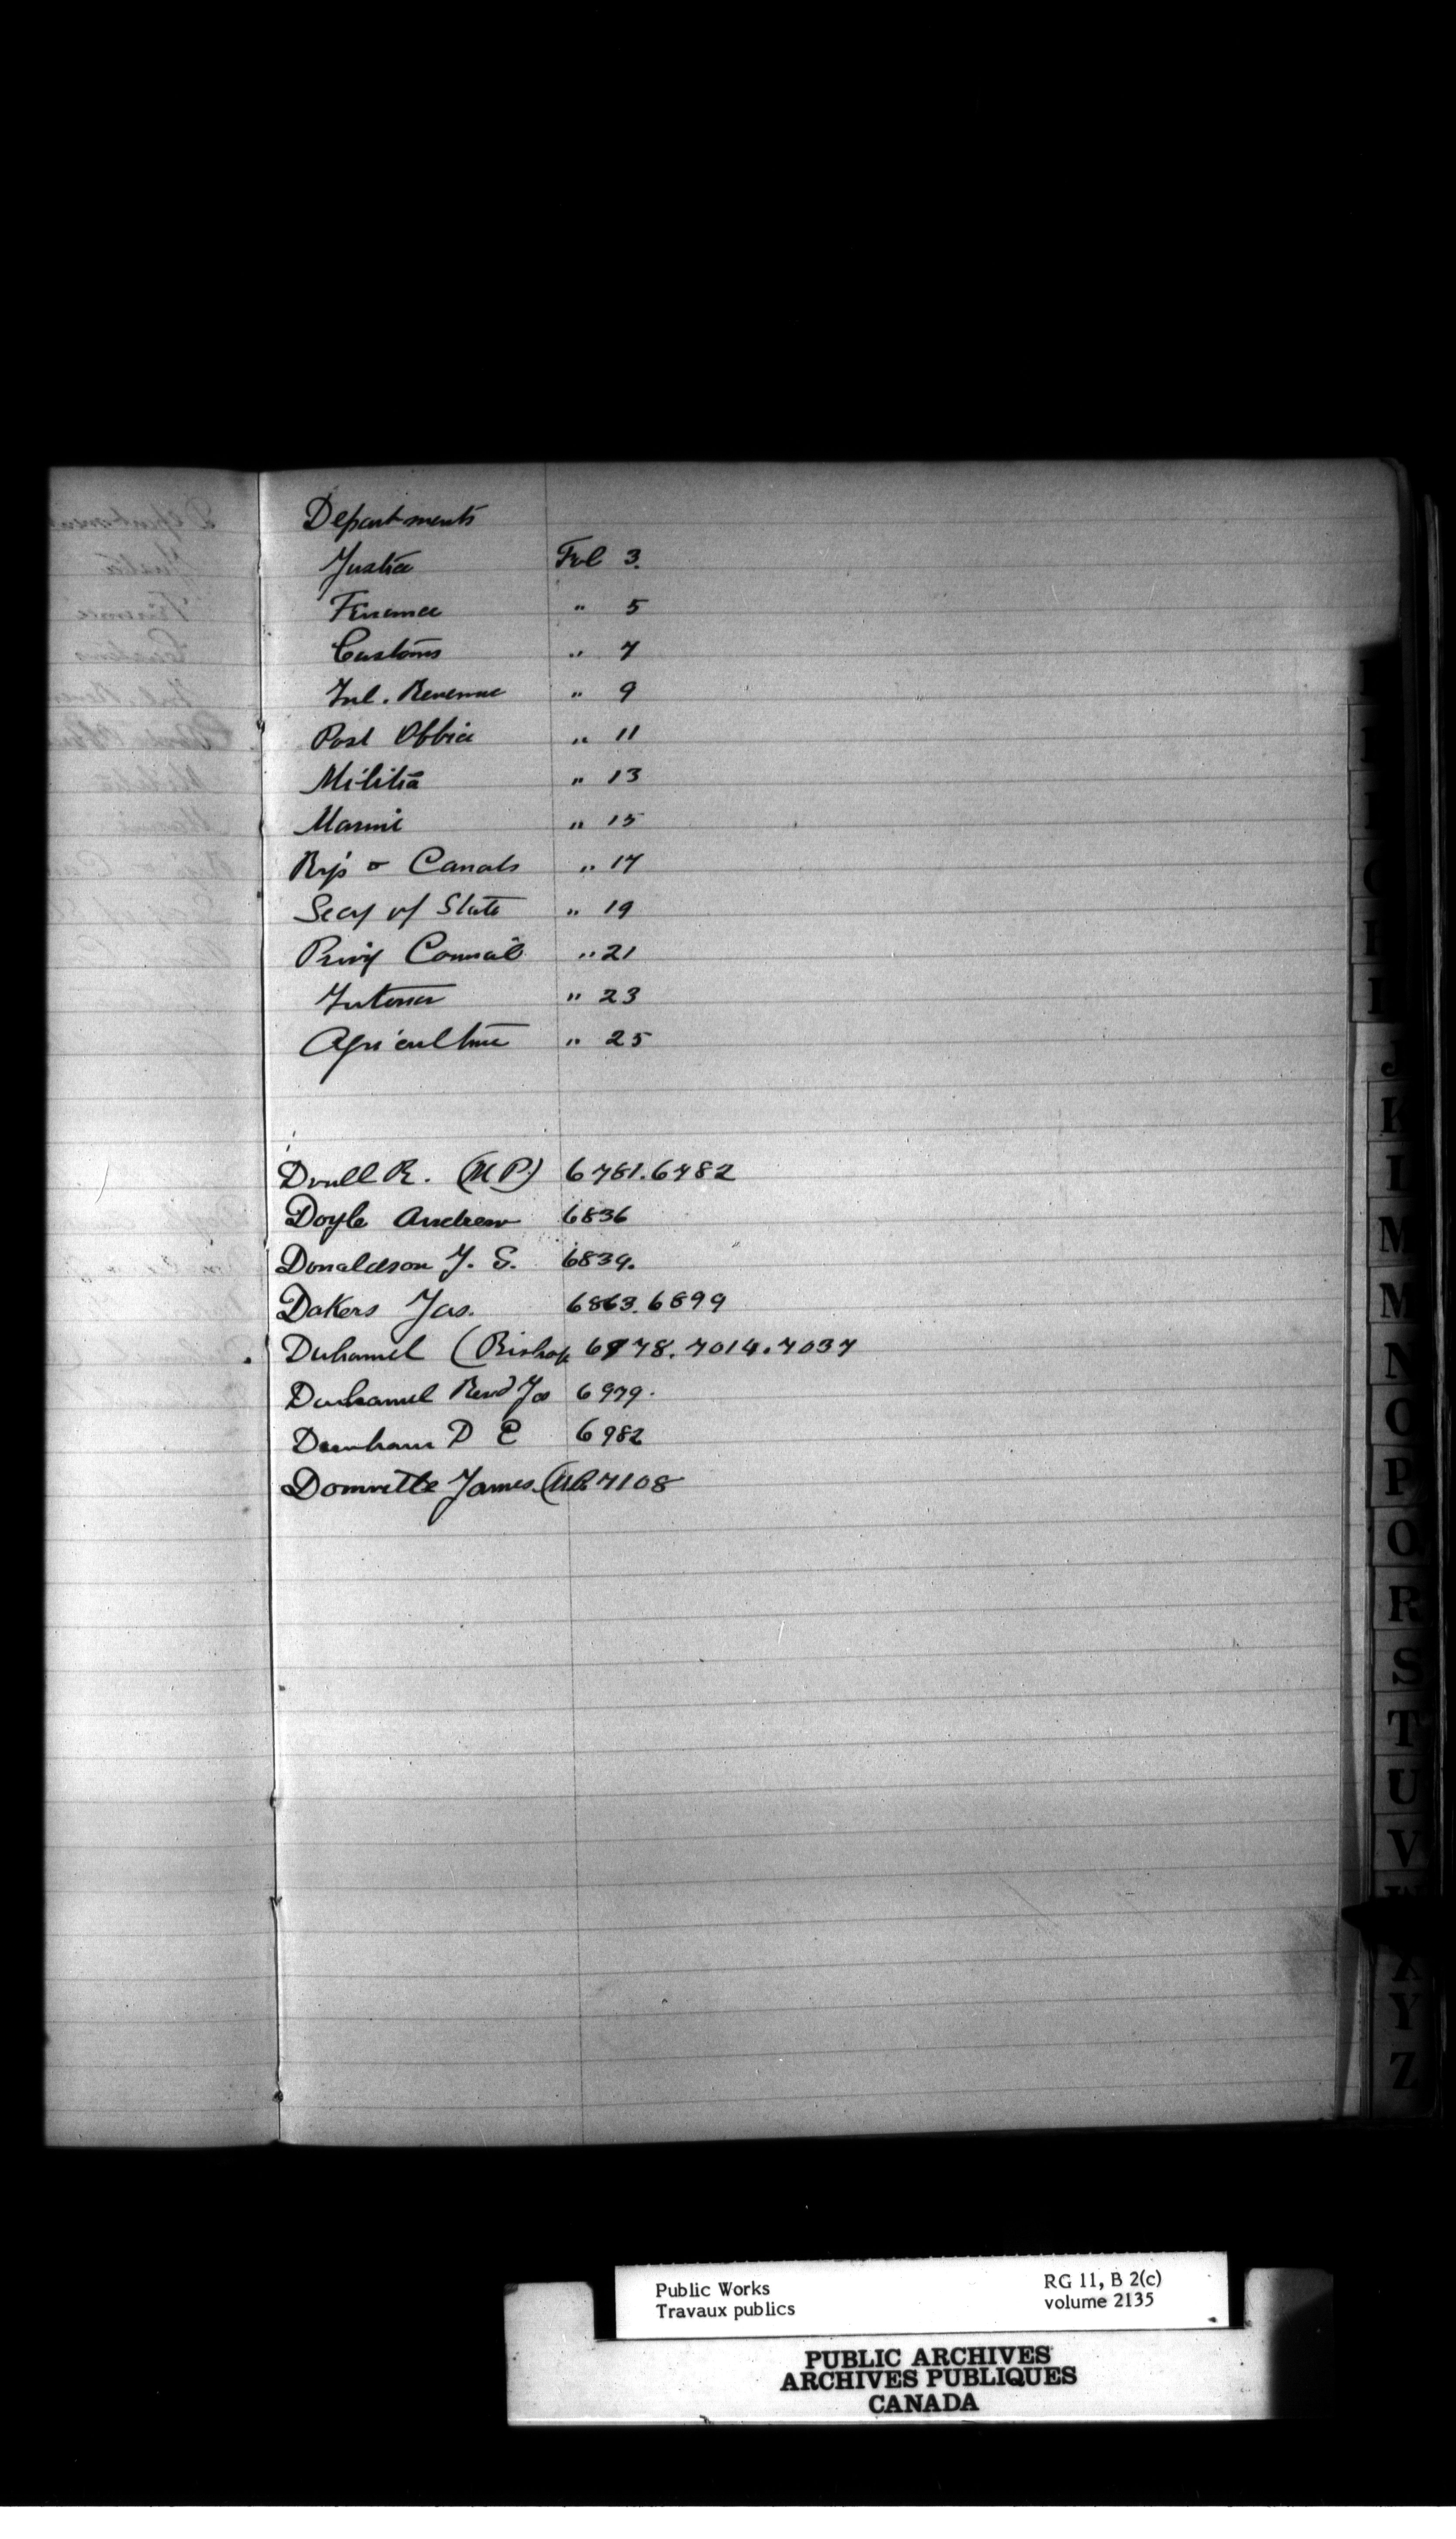 Departments
Justice Fol 3.
Finance " 5
Customs " 7
Inl. Revenue " 9
Post Office " 11
Militia " 13
Marine " 15
Rys & Canals " 17
Secy of State " 19
Privy Council " 21
Interior " 23
Agriculture " 25
Doull R. (MP) 6781.6782
Doyle Andrew 6836
Donaldson J. S. 6839.
Dakers Jas. 6863.6899
Duhamel (Bishop 6978.7014.7037
Duhamel Revd Jos 6979.
Dunham D E 6982
Domville James (MP. 7108
I
J
K
L
M
M
N
O
P
Q
R
S
T
U
V
X
Y
Z
Public Works RG 11, B 2(c)
Travaux publics volume 2135
PUBLIC ARCHIVES
ARCHIVES PUBLIQUES
CANADA